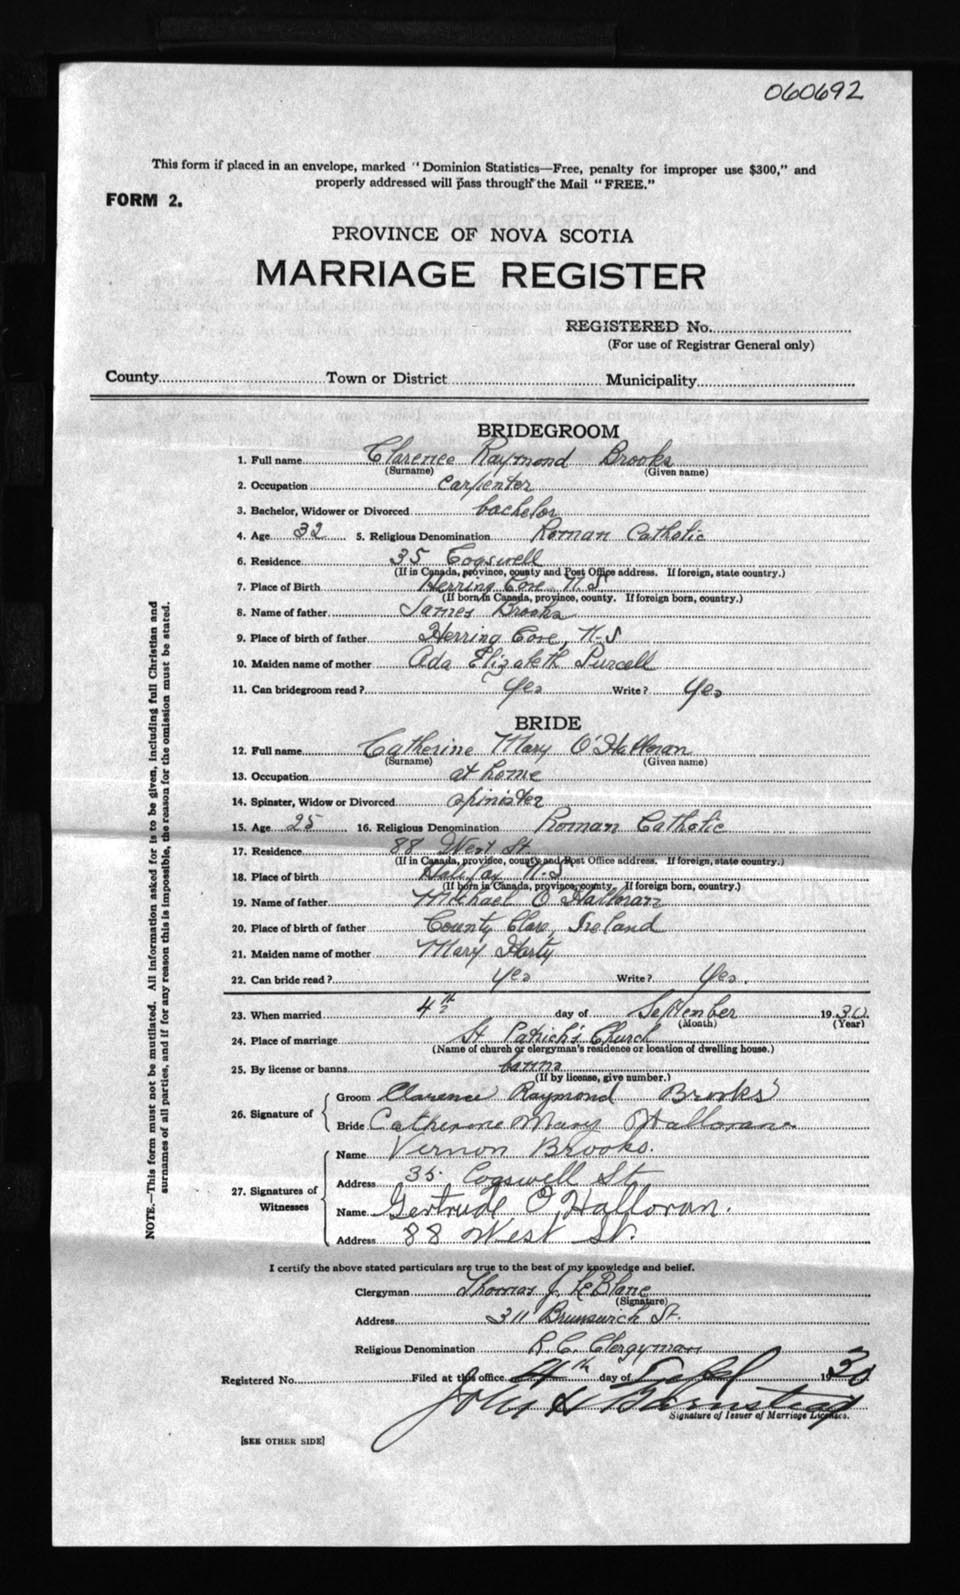 060692
This form if placed in an envelope, marked "Dominion Statistics—Free, penalty for improper use $300," and
properly addressed will pass through the Mail "FREE."
FORM 2.
PROVINCE OF NOVA SCOTIA
MARRIAGE REGISTER
REGISTERED No.
(For use of Registrar General only)
County Town or District Municipality
BRIDEGROOM
1. Full name Clarence Raymond Brooks
(Surname) (Given name)
2. Occupation carpenter
3. Bachelor, Widower or Divorced bachelor
4. Age 32 5. Religious Denomination Roman Catholic
6. Residence 35 Cogswell
(If in Canada, province, county and Post Office address. If foreign, state country.)
7. Place of Birth Herring Cove N.S
(If born in Canada, province, county. If foreign born, country.)
8. Name of father James Brooks
9. Place of birth of father Herring Cove, N-S
10. Maiden name of mother Ada Elizabeth Purcell
11. Can bridegroom read? yes Write? yes
BRIDE
12. Full name Catherine Mary O'Halloran
(Surname) (Given name)
13. Occupation at home
14. Spinster, Widow or Divorced spinister
15. Age 25 16. Religious Denomination Roman Catholic
17. Residence 88 West St.
(If in Canada, province, county and Post Office address. If foreign, state country.)
18. Place of birth Halifax N-S
(If born in Canada, province, county. If foreign born, country.)
19. Name of father Michael O Halloran
20. Place of birth of father County Clare, Ireland
21. Maiden name of mother Mary Harty
22. Can bride read? yes Write? Yes.
23. When married 4th day of September 1930
(Month) (Year)
24. Place of marriage St Patrick's Church
(Name of church or clergyman's residence or location of dwelling house.)
25. By license or banns banns
(If by license, give number.)
26. Signature of Groom Clarence Raymond Brooks
Bride Catherine Mary O'Hallorane
27. Signatures of Witnesses
Name Vernon Brooks.
Address 35 Cogswell St.
Name Gertrude O'Halloran.
Address 88 West St.
I certify the above stated particulars are true to the best of my knowledge and belief.
Clergyman Thomas J. LeBlanc
(Signature)
Address 311 Brunswick St.
Religious Denomination R.C. Clergyman
Registered No. Filed at this office 4th day of Sept 1930
John H Barnstead
Signature of Issuer of Marriage Licenses.
[SEE OTHER SIDE]
NOTE.—This form must not be mutilated. All information asked for is to be given, including full Christian and
surnames of all parties, and if for any reason this is impossible, the reason for the omission must be stated.